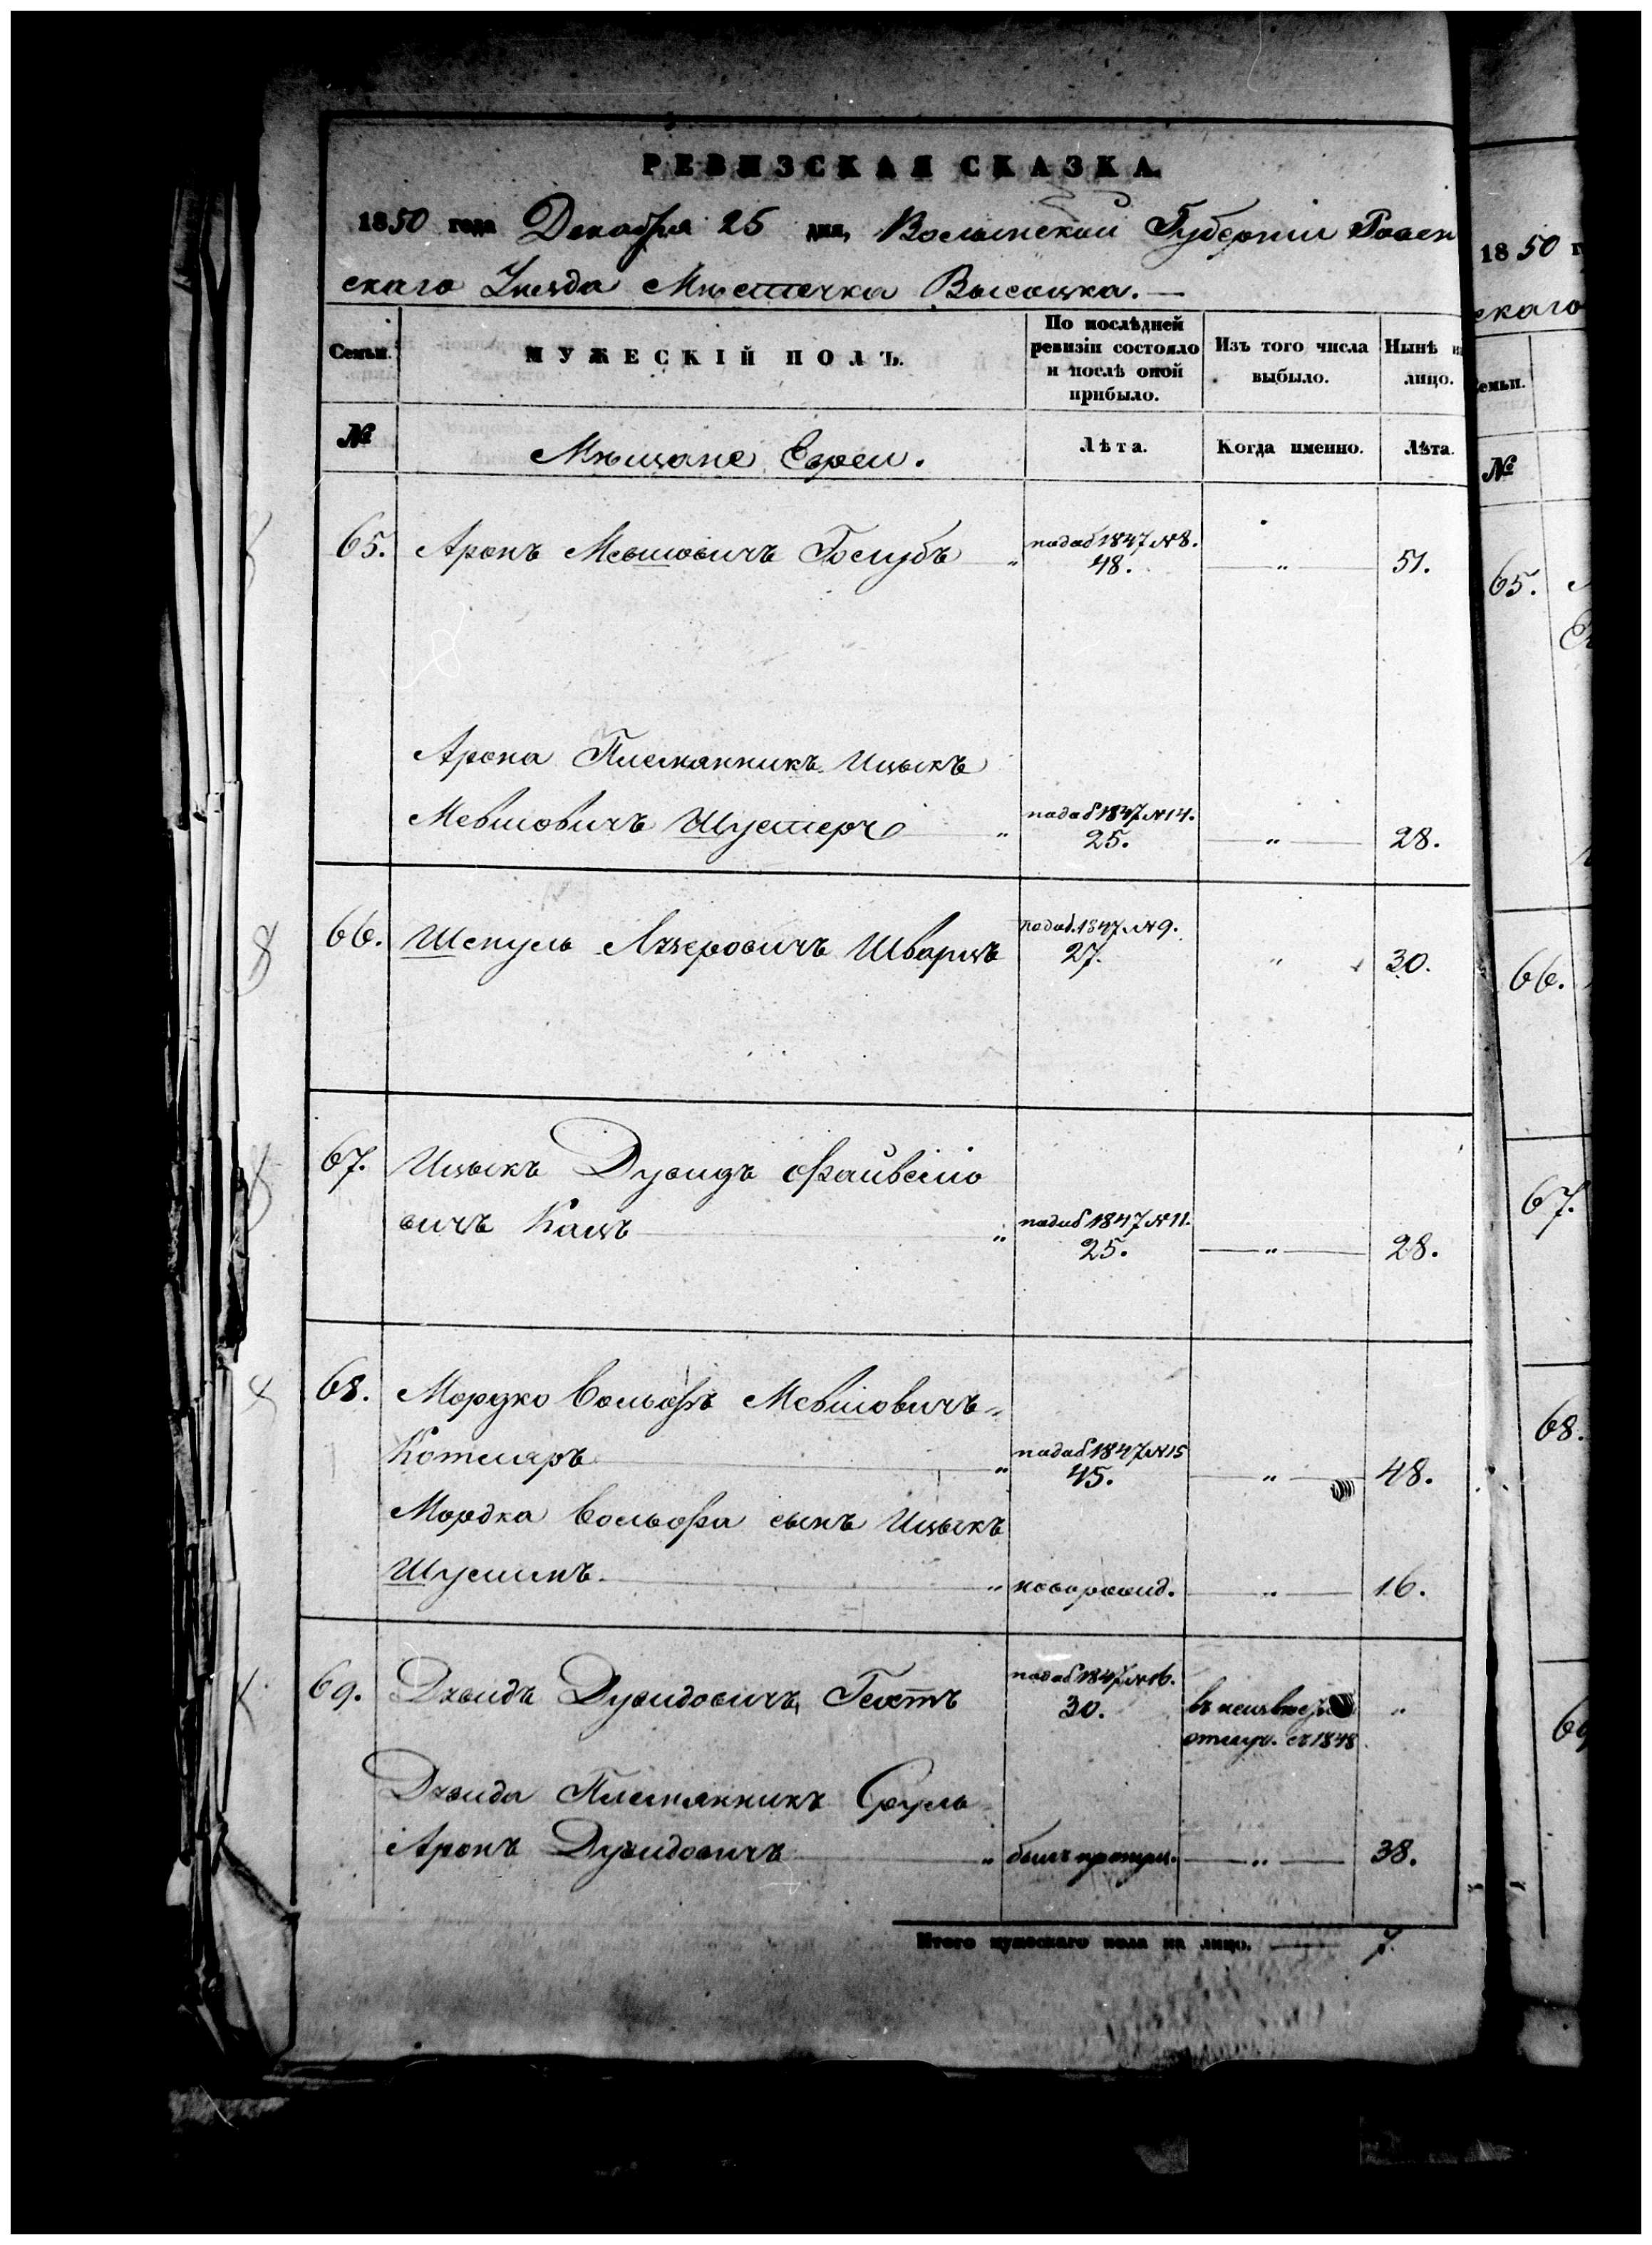 РЕВИЗСКАЯ СКАЗКА.
1850 года Декабря 25 дня, Волынской Губернiи Ровен
скаго Уѣзда Мѣстечка Высоцка.—
Семьи. МУЖЕСКІЙ ПОЛЪ. По послѣдней ревизіи состояло и послѣ оной прибыло. Изъ того числа выбыло. Нынѣ на лицо.
№ Мѣщане Евреи. Лѣта. Когда именно. Лѣта.
65. Аронъ Мевшовичъ Голубъ " 1847 №8. 48. — " — 51.
Арона Племянникъ Ицыкъ
Мевшовичъ Шустеръ " 1847 №14. 25. — " — 28.
66. Шепсель Лейзеровичъ Шварцъ 1847 №9. 27. " 30.
67. Ицыкъ Дувидъ Файвелio
вичъ Кацъ — " 1847 №11. 25. — " — 28.
68. Мордко Вольфъ Мевшовичъ
Котляръ — " 1847 №15 45. — " — 48.
Мордка Вольфа сынъ Ицыкъ
— " новорожд. — " — 16.
69. Давидъ Дувидовичъ 1847 №16. 30. въ
отлуч. съ 1848 "
Давида Племянникъ Сруль
Аронъ Дувидовичъ — " былъ — " — 38.
Итого мужескаго пола на лицо. — 7.
1850 г
скаго
Семьи.
№
65.
66.
67.
68.
69